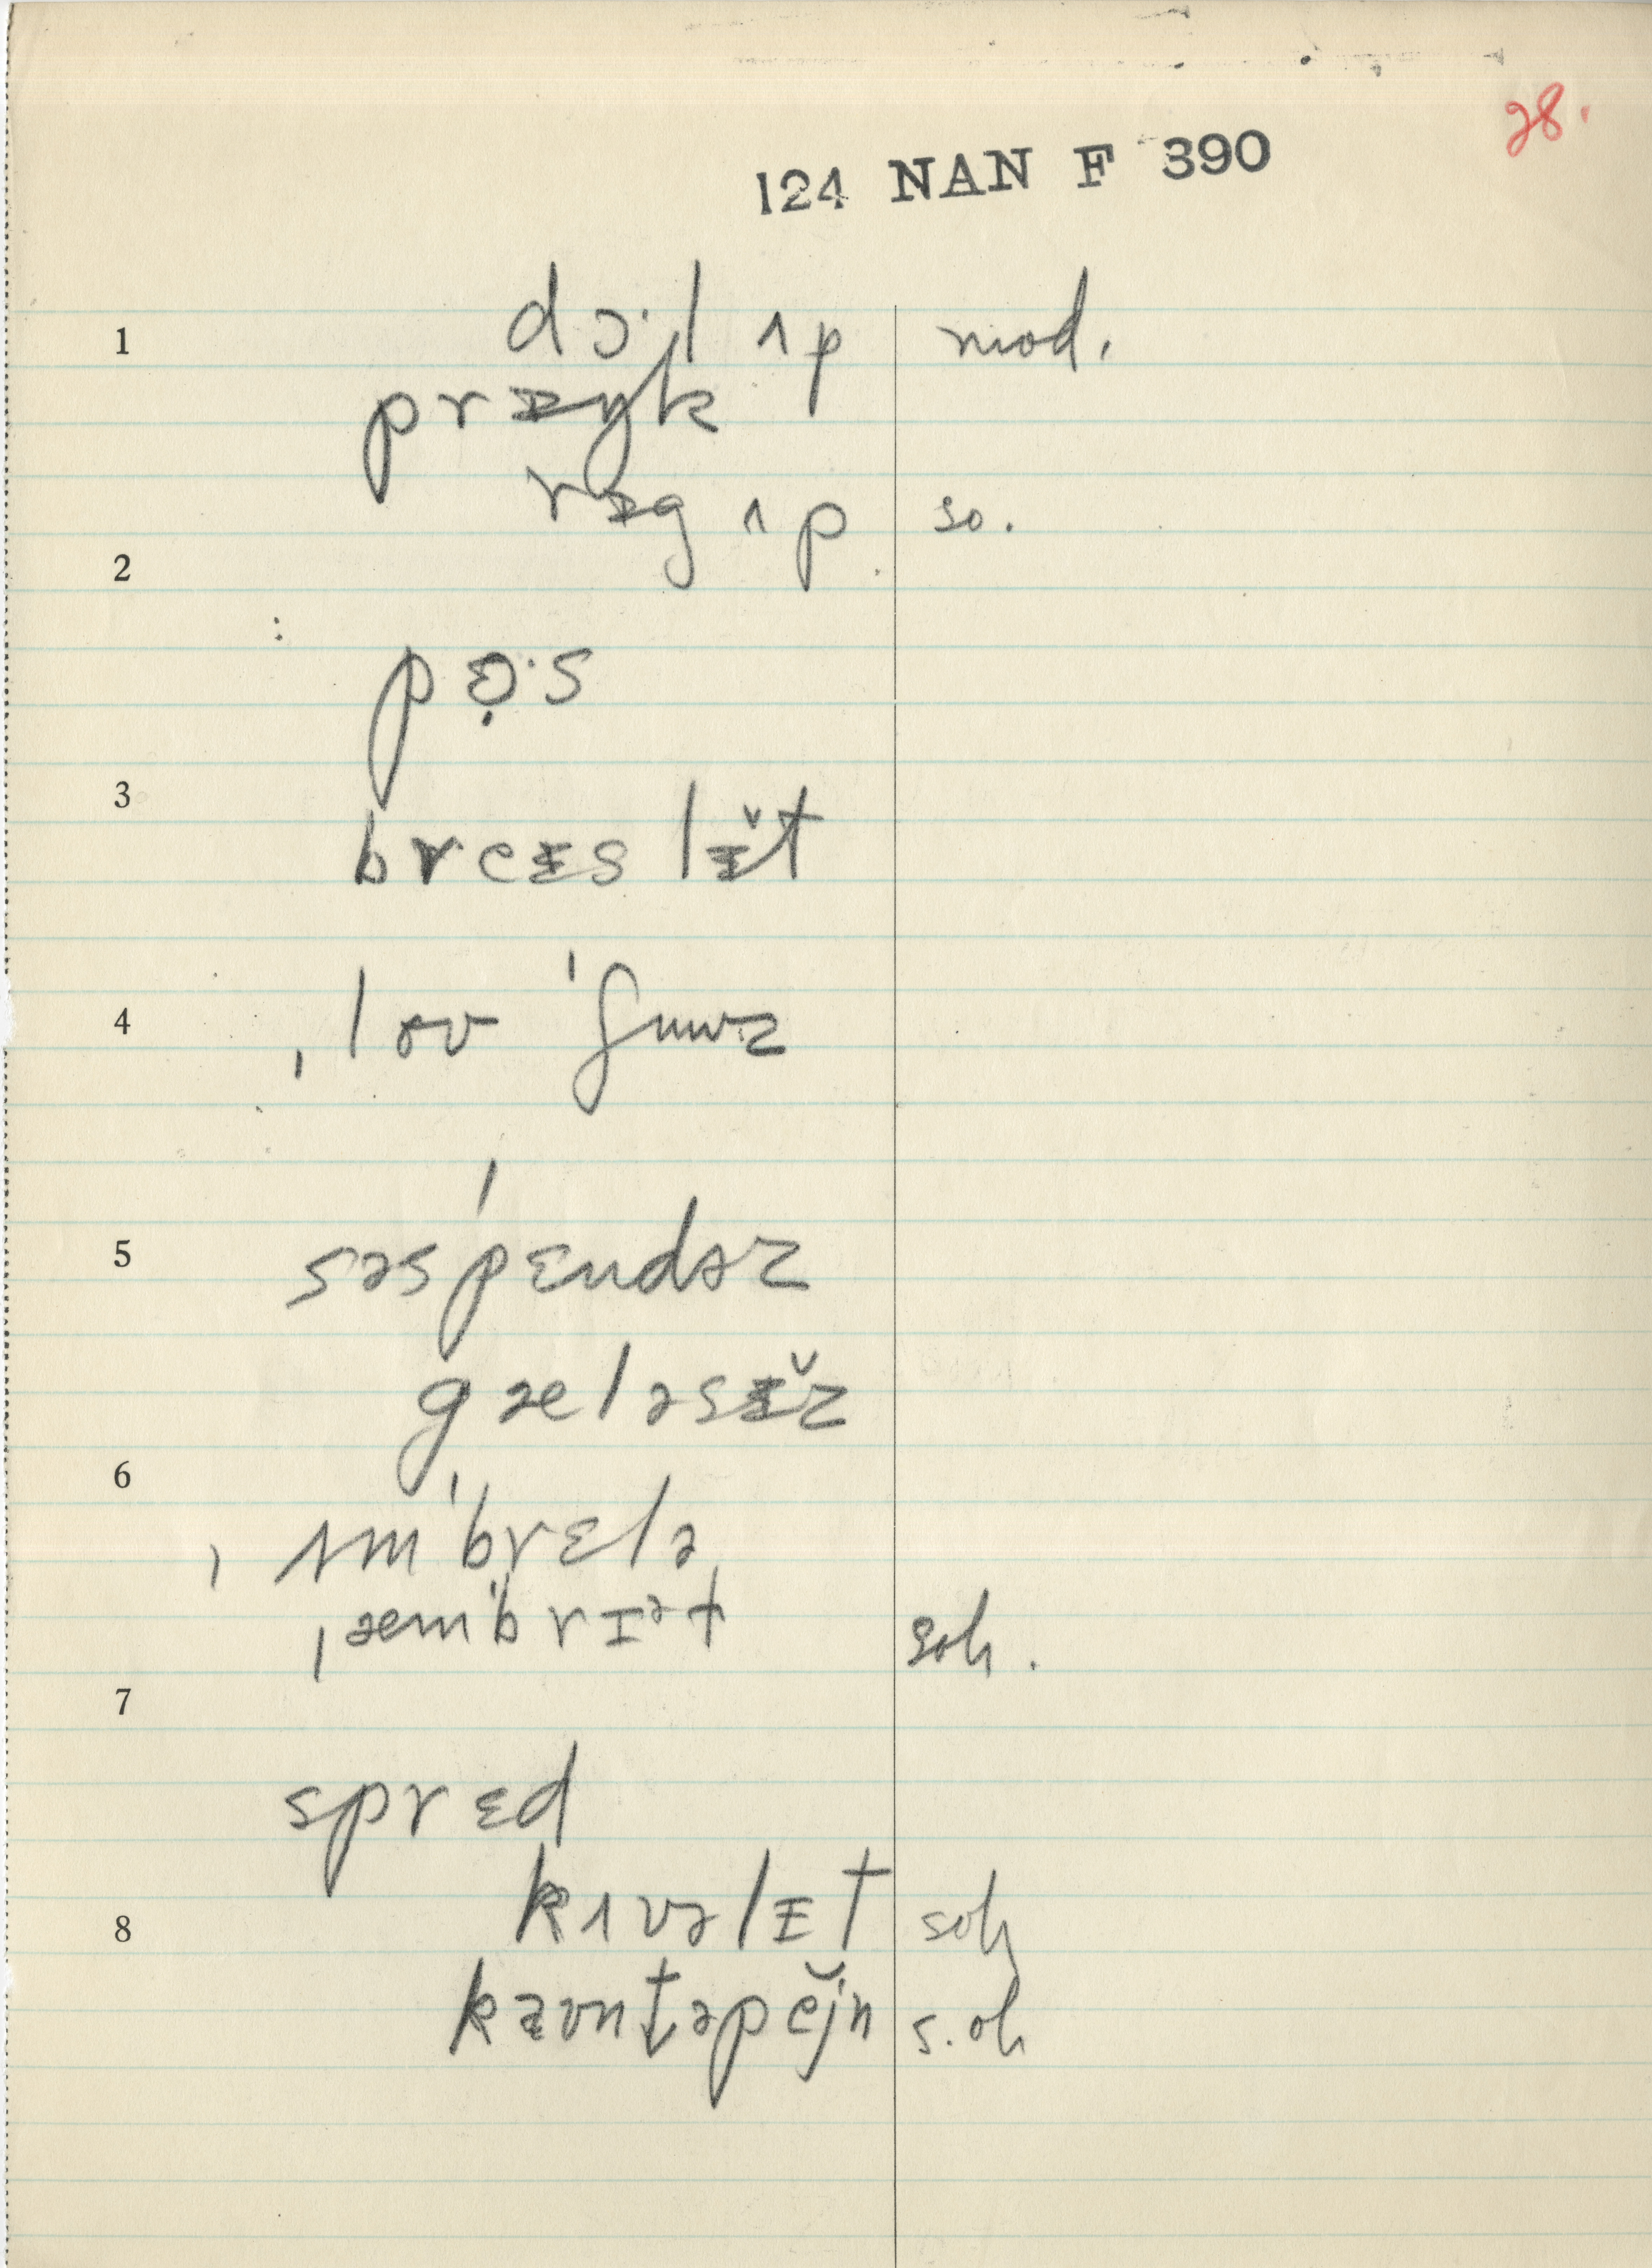 28.
124 NAN F 390
1 dɔ·l ʌp mod.
prᵻŋk
2 rᵻg ʌp so.
pɘ̣·s
3 breᵻslᵻ̌t
4 ˌlɘʊ ˈʃuuz
5 səsˈpɛndəz
gæləsᵻ̌z
6 ˌʌmˈbrɛlə
ˌæmˈbrɪət soh.
7
spr ɛd
8 kɪvəlɪt soh
kaʊntəpĕjn s.oh